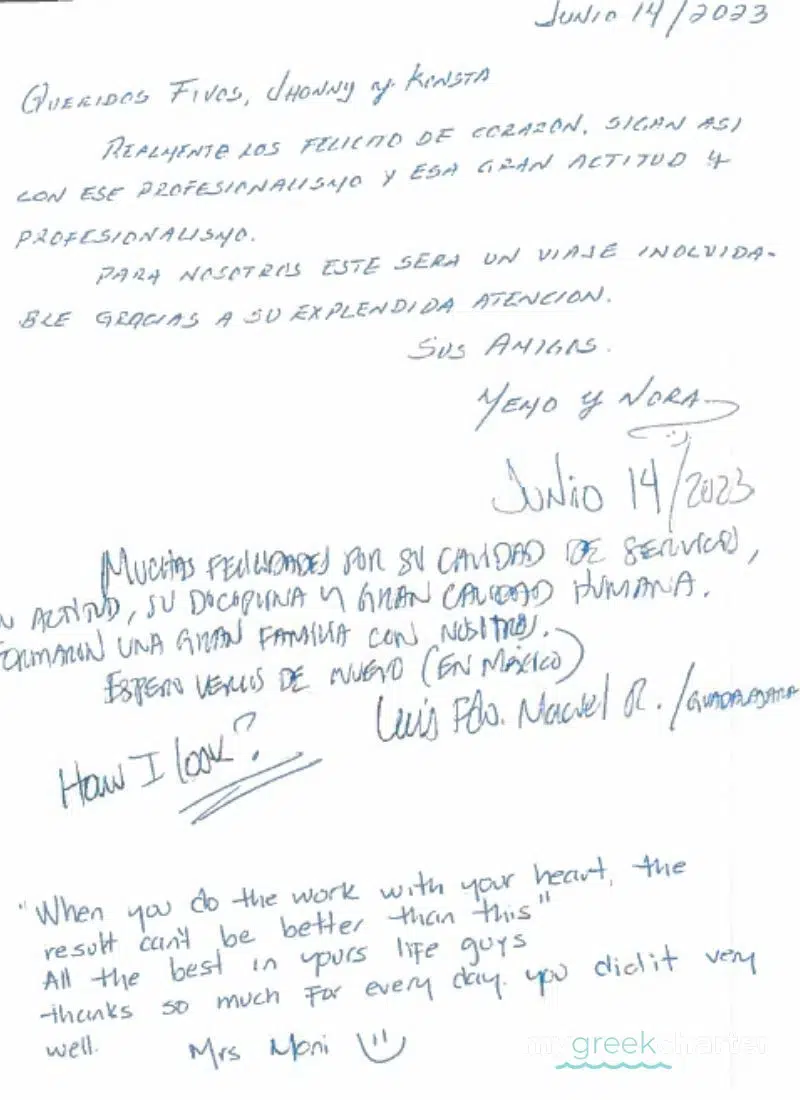 Junio 14/2023
Queridos Fivos, Jhonny y Konsta
Realmente los felicito de corazon, sigan asi
con ese profesionalismo y esa gran actitud y
profesionalismo.
Para nosotros este sera un viaje inolvida-
ble gracias a su explendida atencion.
Sus Amigos.
Memo y Nora
Junio 14/2023
Muchas felicidades por su calidad de servicio,
su actitud, su disciplina y gran calidad humana.
Formaron una gran familia con nosotros.
Espero verlos de nuevo (en México)
Luis Fdo. Maciel R. /Guadalajara
How I look?
"When you do the work with your heart, the
result can't be better than this"
All the best in yours life guys
thanks so much For every day. you did it very
well.
Mrs Moni
mygreekcharter